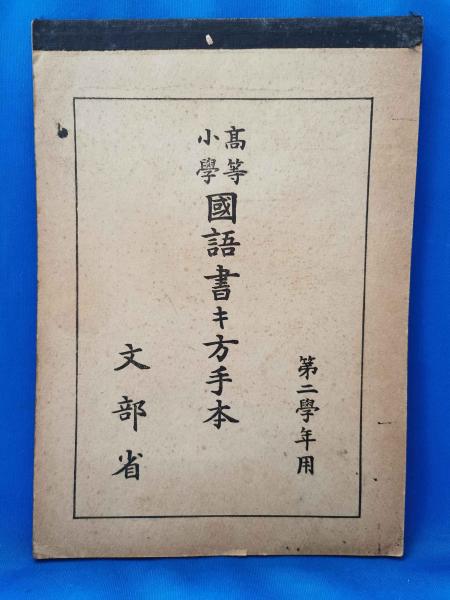 第二學年用
高等小學國語書キ方手本
文部省